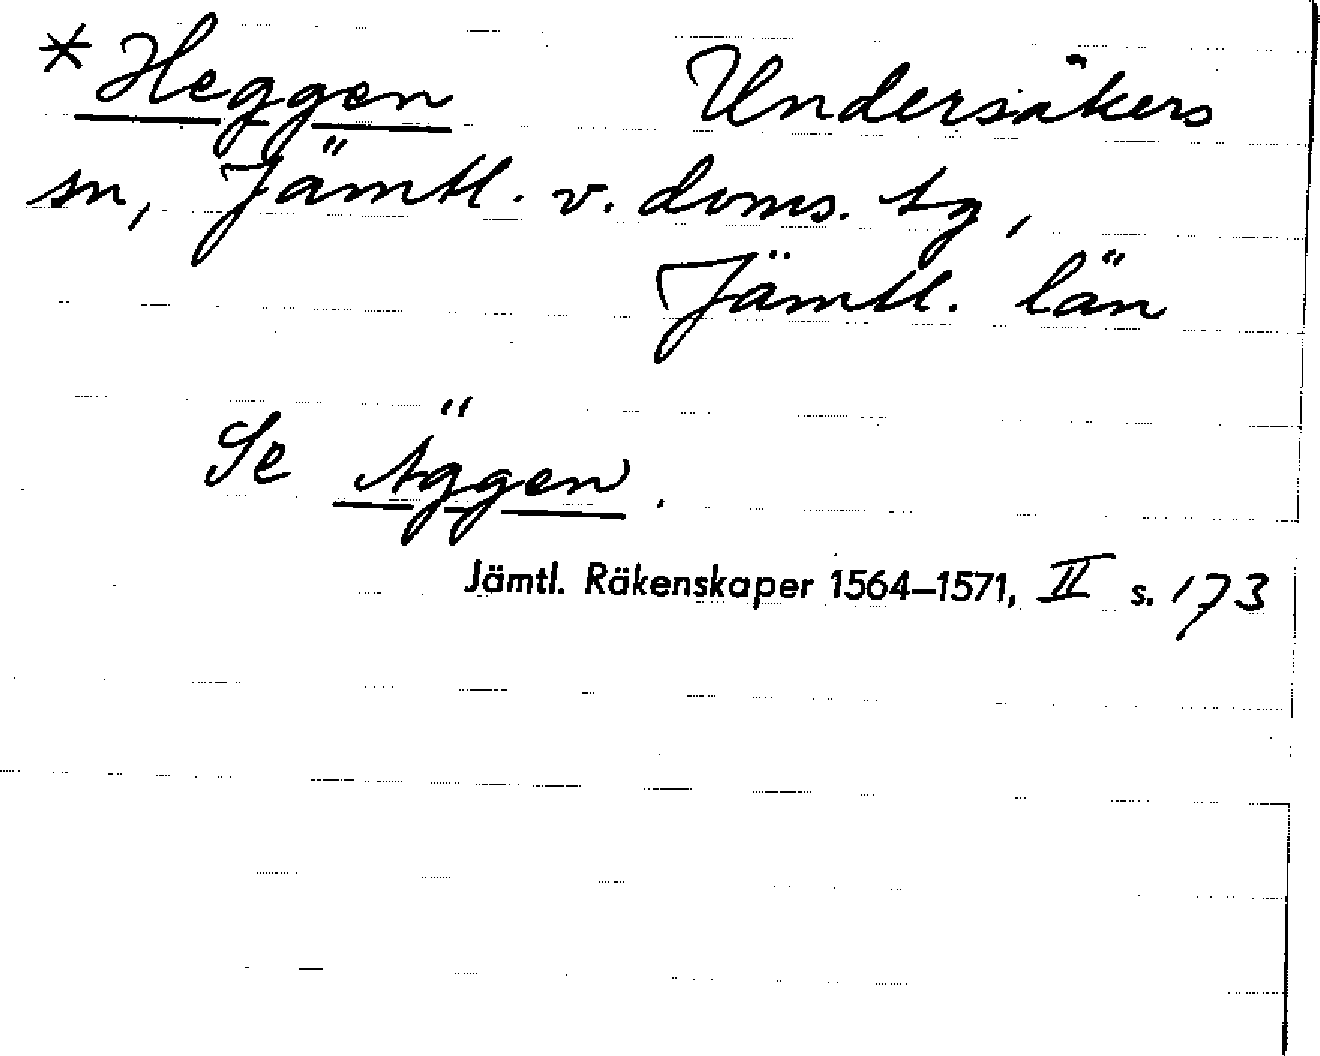 * Heggen Undersåkers
sn, Jämtl. v. doms. tg,
Jämtl. län
Se Äggen.
Jämtl. Räkenskaper 1564–1571, II s. 173